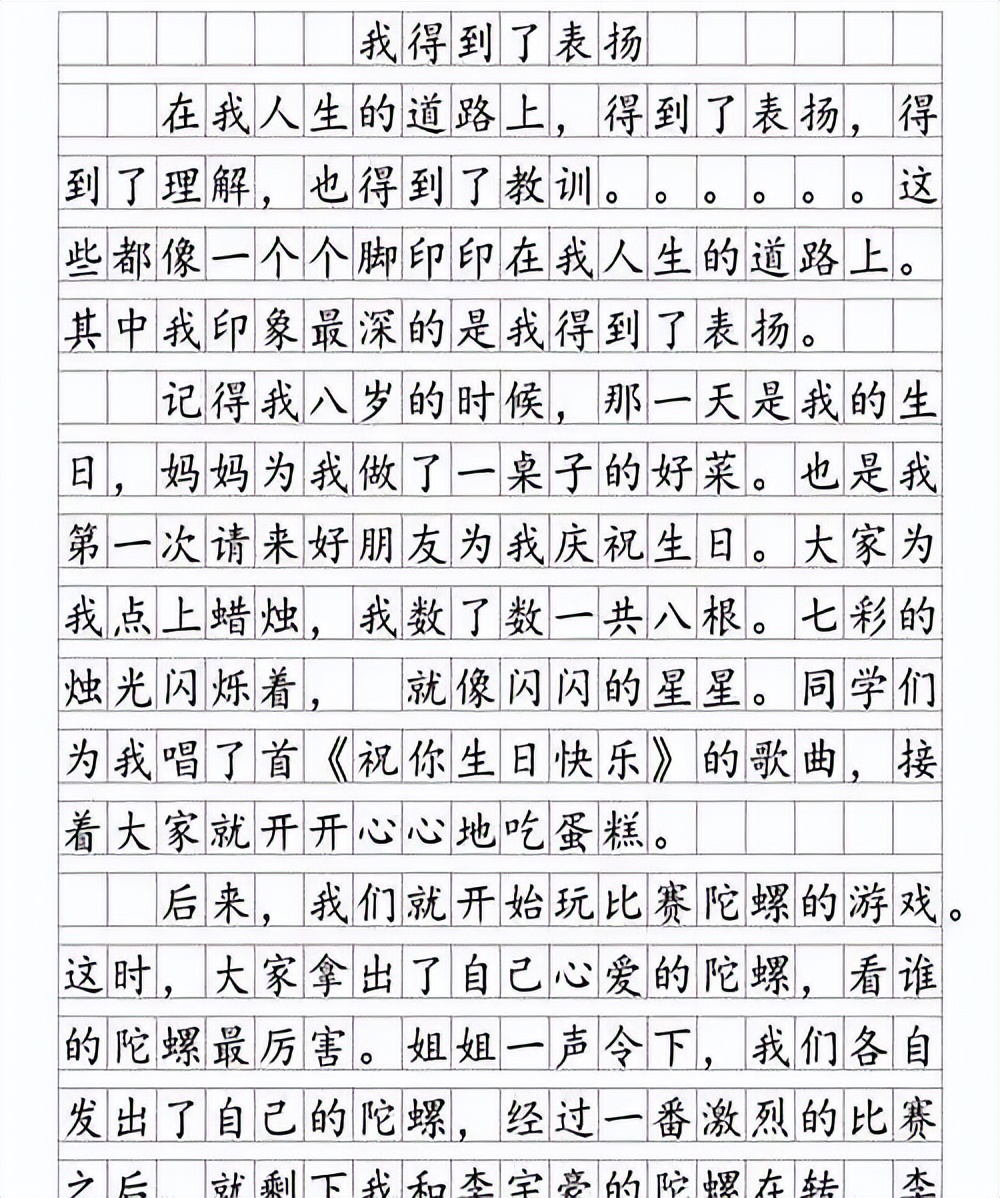 我得到了表扬
在我人生的道路上，得到了表扬，得
到了理解，也得到了教训。。。。。。这
些都像一个个脚印印在我人生的道路上。
其中我印象最深的是我得到了表扬。
记得我八岁的时候，那一天是我的生
日，妈妈为我做了一桌子的好菜。也是我
第一次请来好朋友为我庆祝生日。大家为
我点上蜡烛，我数了数一共八根。七彩的
烛光闪烁着，　就像闪闪的星星。同学们
为我唱了首《祝你生日快乐》的歌曲，接
着大家就开开心心地吃蛋糕。
后来，我们就开始玩比赛陀螺的游戏。
这时，大家拿出了自己心爱的陀螺，看谁
的陀螺最厉害。姐姐一声令下，我们各自
发出了自己的陀螺，经过一番激烈的比赛
之后　就剩下我和李宇豪的陀螺在转　李